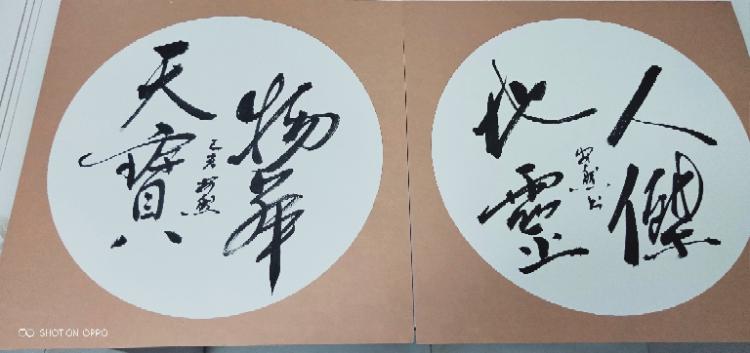 物華
天寶
人傑
地靈
SHOT ON OPPO